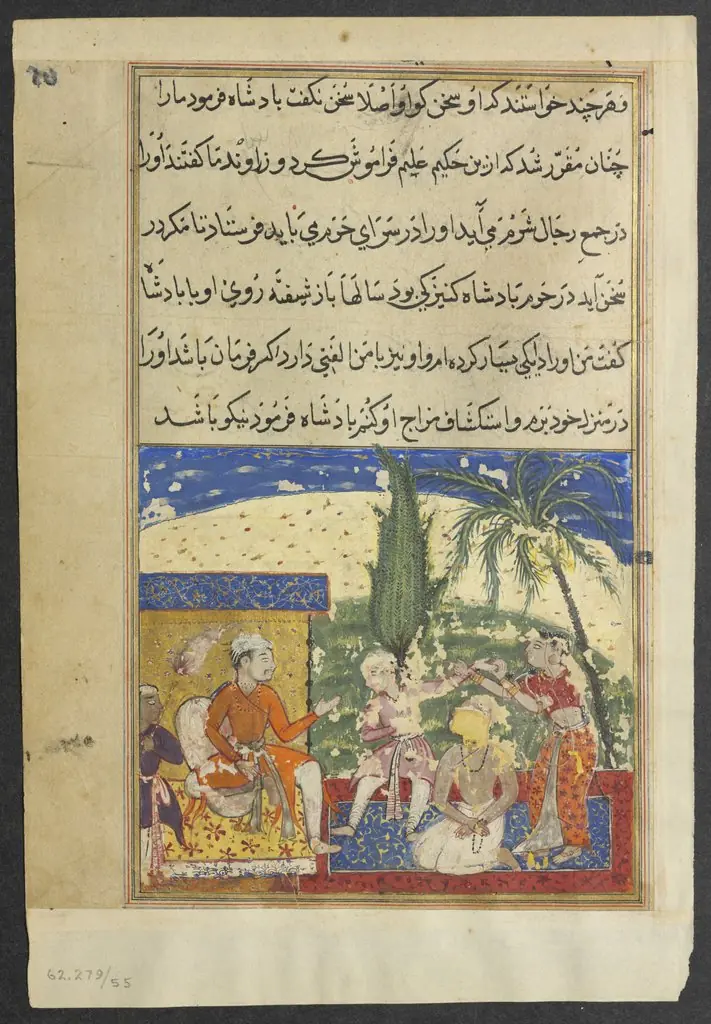 و هر چند خواستند که او سخن کو او اصلا سخن نکفت بادشاه فرمود مارا
چنان مقرر شد که ازین حکیم علیم فراموش کرد و زاوند ما کفتند اورا
در جمع رجال شرم می آید اورا در سرای حرم می باید فرستاد تا مکر در
سخن آید در حرم بادشاه کنیزکی بود سالها باز شیفته روی او با بادشاه
کفت من اورا دایکی بسیار کرده ام و او نیز با من الفتی دارد اکر فرمان باشد اورا
در منزل خود برم و استکشاف مزاج او کنم بادشاه فرمود نیکو باشد
62.279/55